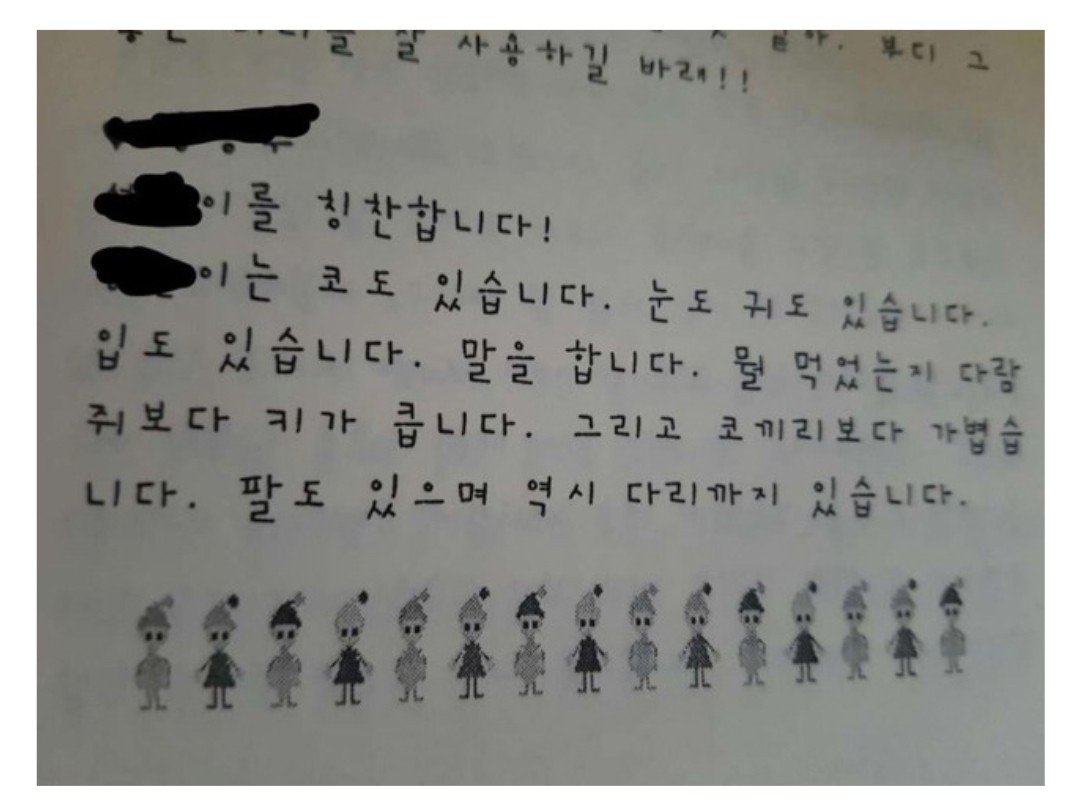 잘 사용하길 바래!! 부디 그
이를 칭찬합니다!
이는 코도 있습니다. 눈도 귀도 있습니다.
입도 있습니다. 말을 합니다. 뭘 먹었는지 다람
쥐보다 키가 큽니다. 그리고 코끼리보다 가볍습
니다. 팔도 있으며 역시 다리까지 있습니다.